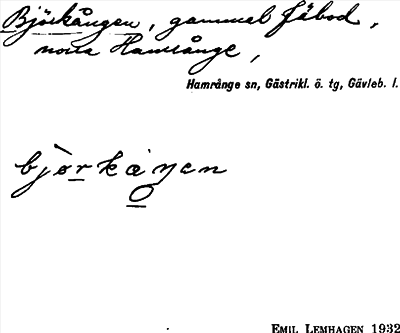 Björkången, gammal fäbod,
norra Hamrånge,
Hamrånge sn, Gästrikl. ö. tg, Gävleb. l.
bjòrkáŋen
O
EMIL LEMHAGEN 1932